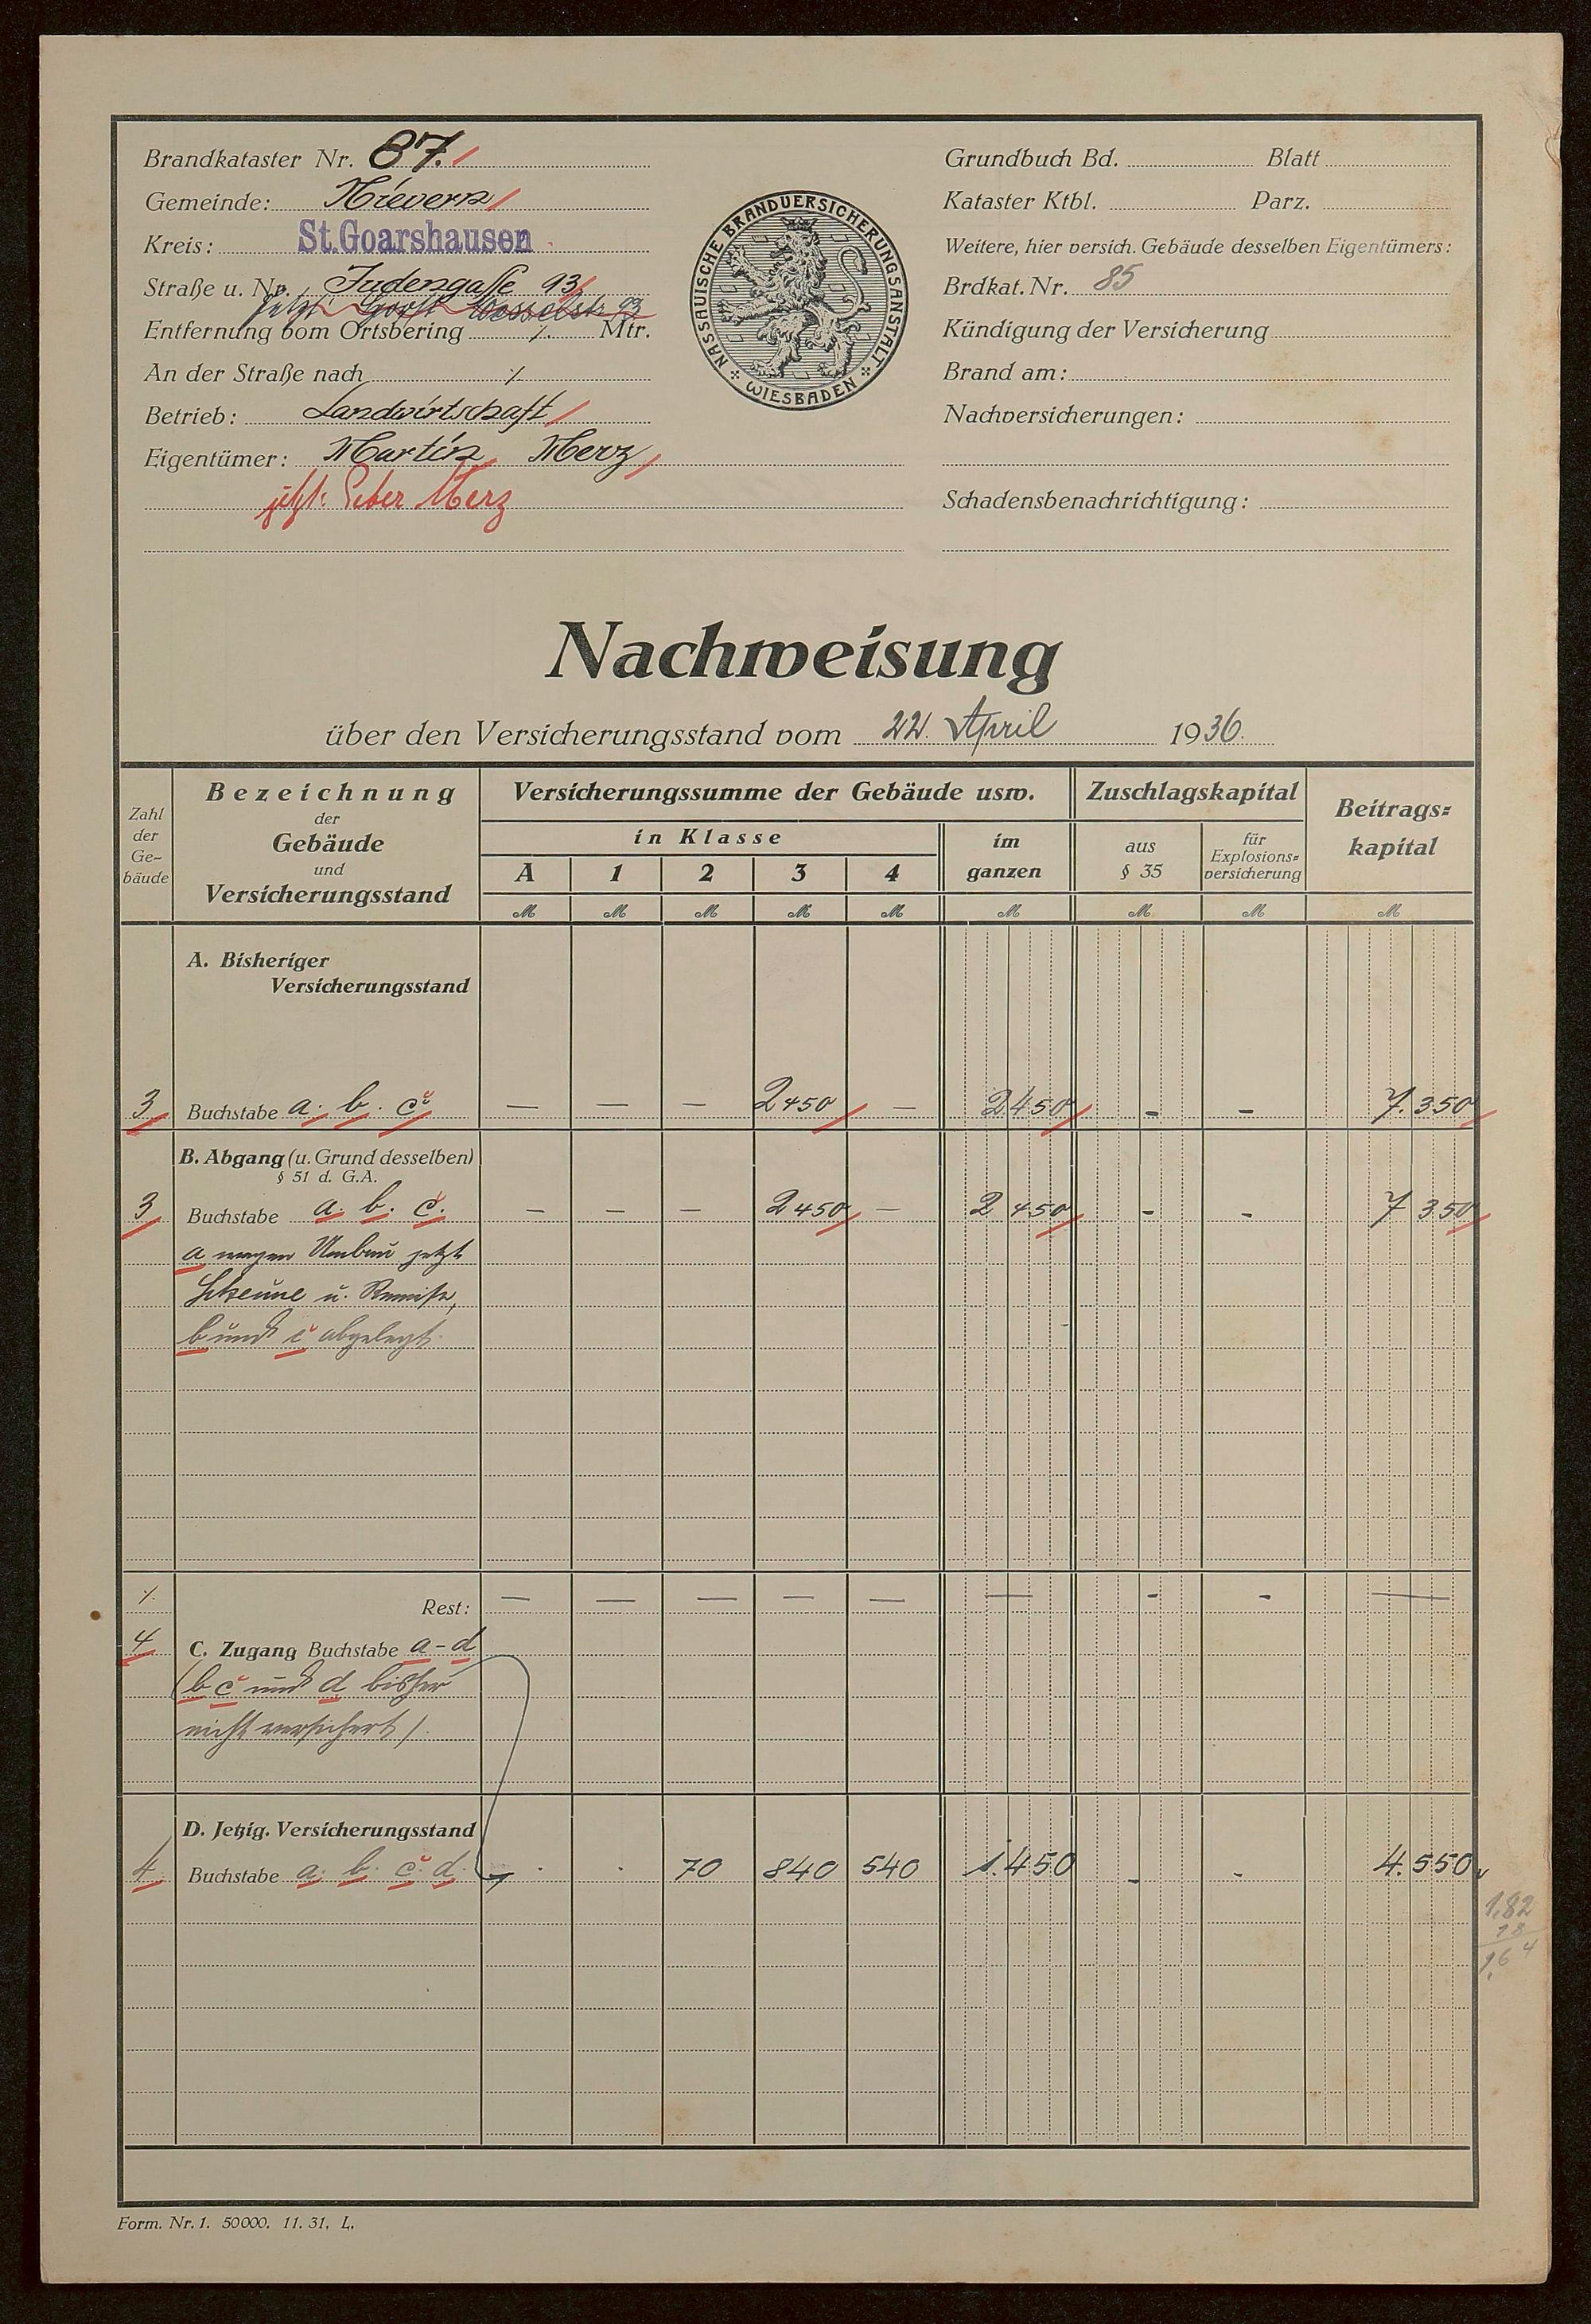 Brandkataster Nr. 87.
Gemeinde: Nievern
Kreis: St. Goarshausen
Straße u. Nr. Judengasse 93
jetzt Horst Wesselstr. 93
Entfernung vom Ortsbering ./. Mtr.
An der Straße nach ./.
Betrieb: Landwirtschaft
Eigentümer: Martin Merz
jetzt: Peter Merz
NASSAUISCHE BRANDVERSICHERUNGSANSTALT
WIESBADEN
Grundbuch Bd. Blatt
Kataster Ktbl. Parz.
Weitere, hier versich. Gebäude desselben Eigentümers:
Brdkat. Nr. 85
Kündigung der Versicherung
Brand am:
Nachversicherungen:
Schadensbenachrichtigung:
Nachweisung
über den Versicherungsstand vom 22. April 1936.
Zahl der Ge-bäude
Bezeichnung
der
Gebäude
und
Versicherungsstand
Versicherungssumme der Gebäude usw.
in Klasse
A 1 2 3 4
im ganzen
Zuschlagskapital
aus § 35
für Explosions=versicherung
Beitrags=kapital
M M M M M M M M M
A. Bisheriger
Versicherungsstand
3 Buchstabe a. b. c. — — — 2450 — 2450 - - 7.350
B. Abgang (u. Grund desselben)
§ 51 d. G.A.
3 Buchstabe a. b. c. — — — 2450 — 2 450 - - 7 350
a wegen Umbau jetzt
Scheune u. Remise,
b und c abgelegt.
./. Rest: — — — — — — - - —
4 C. Zugang Buchstabe a-d
(b c und d bisher
nicht versichert).
D. Jetzig. Versicherungsstand
4 Buchstabe a. b. c. d. - . . 70 840 540 1.450 - - 4.550
1,82
18
1,64
Form. Nr. 1. 50000. 11. 31. L.